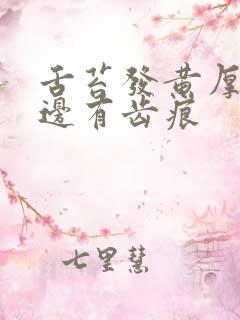 舌苔發黄厚
邊有齿痕
七里慧